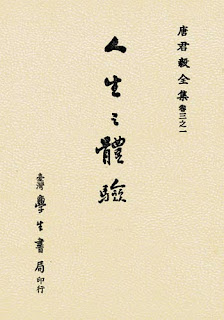 唐君毅全集 卷三之一
人生之體驗
臺灣學生書局印行